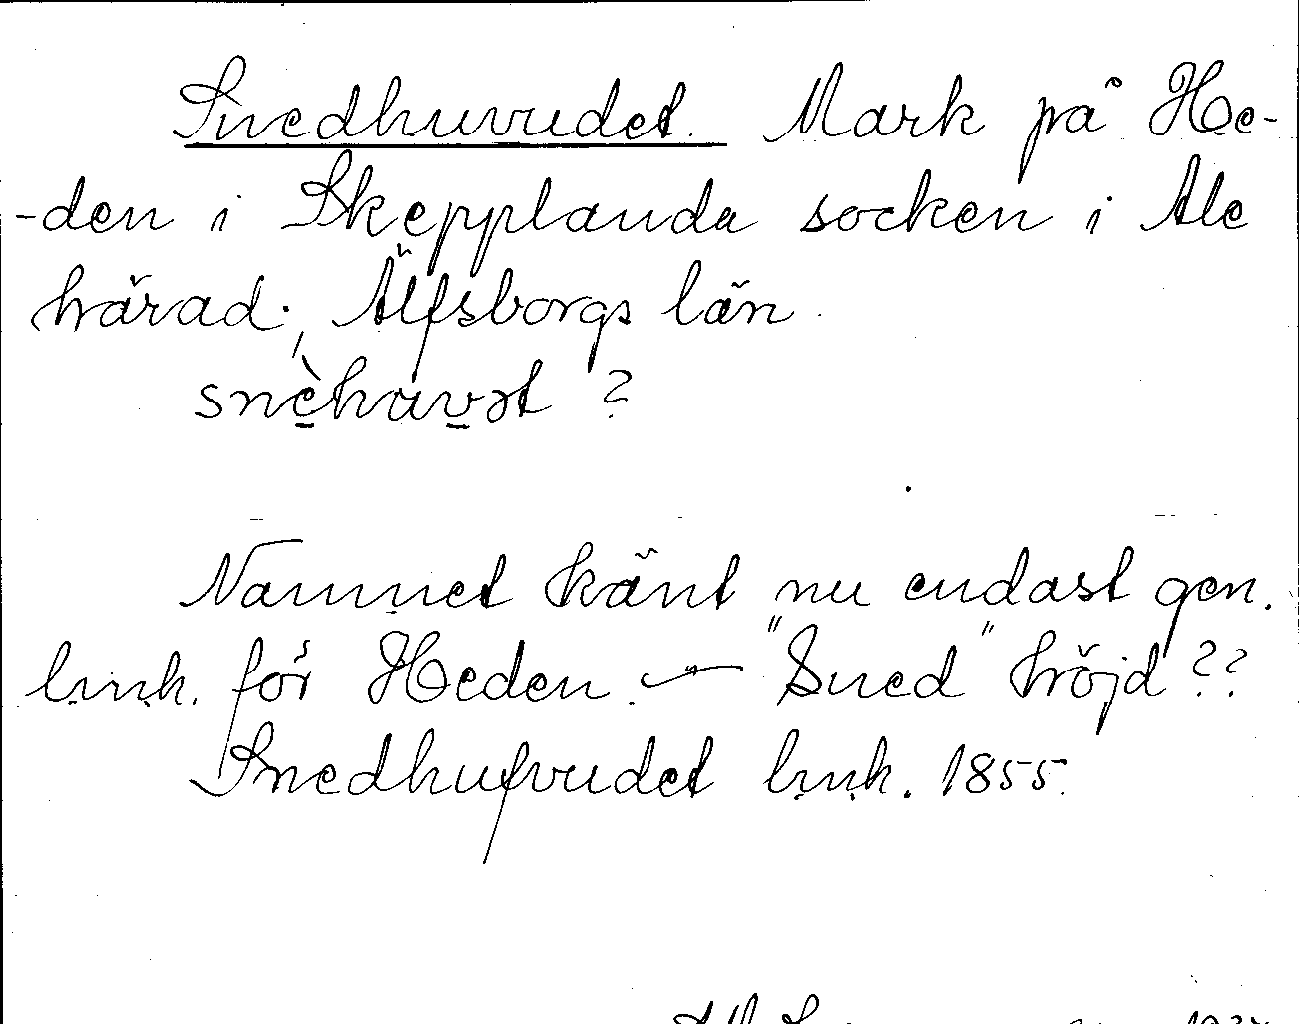 Snedhuvudet. Mark på He-
-den i Skepplanda socken i Ale
härad, Älfsborgs län
snèhuvət ?
Namnet känt nu endast gen.
lmk. för Heden. — "Sned" höjd ??
Snedhufvudet lmk. 1855.